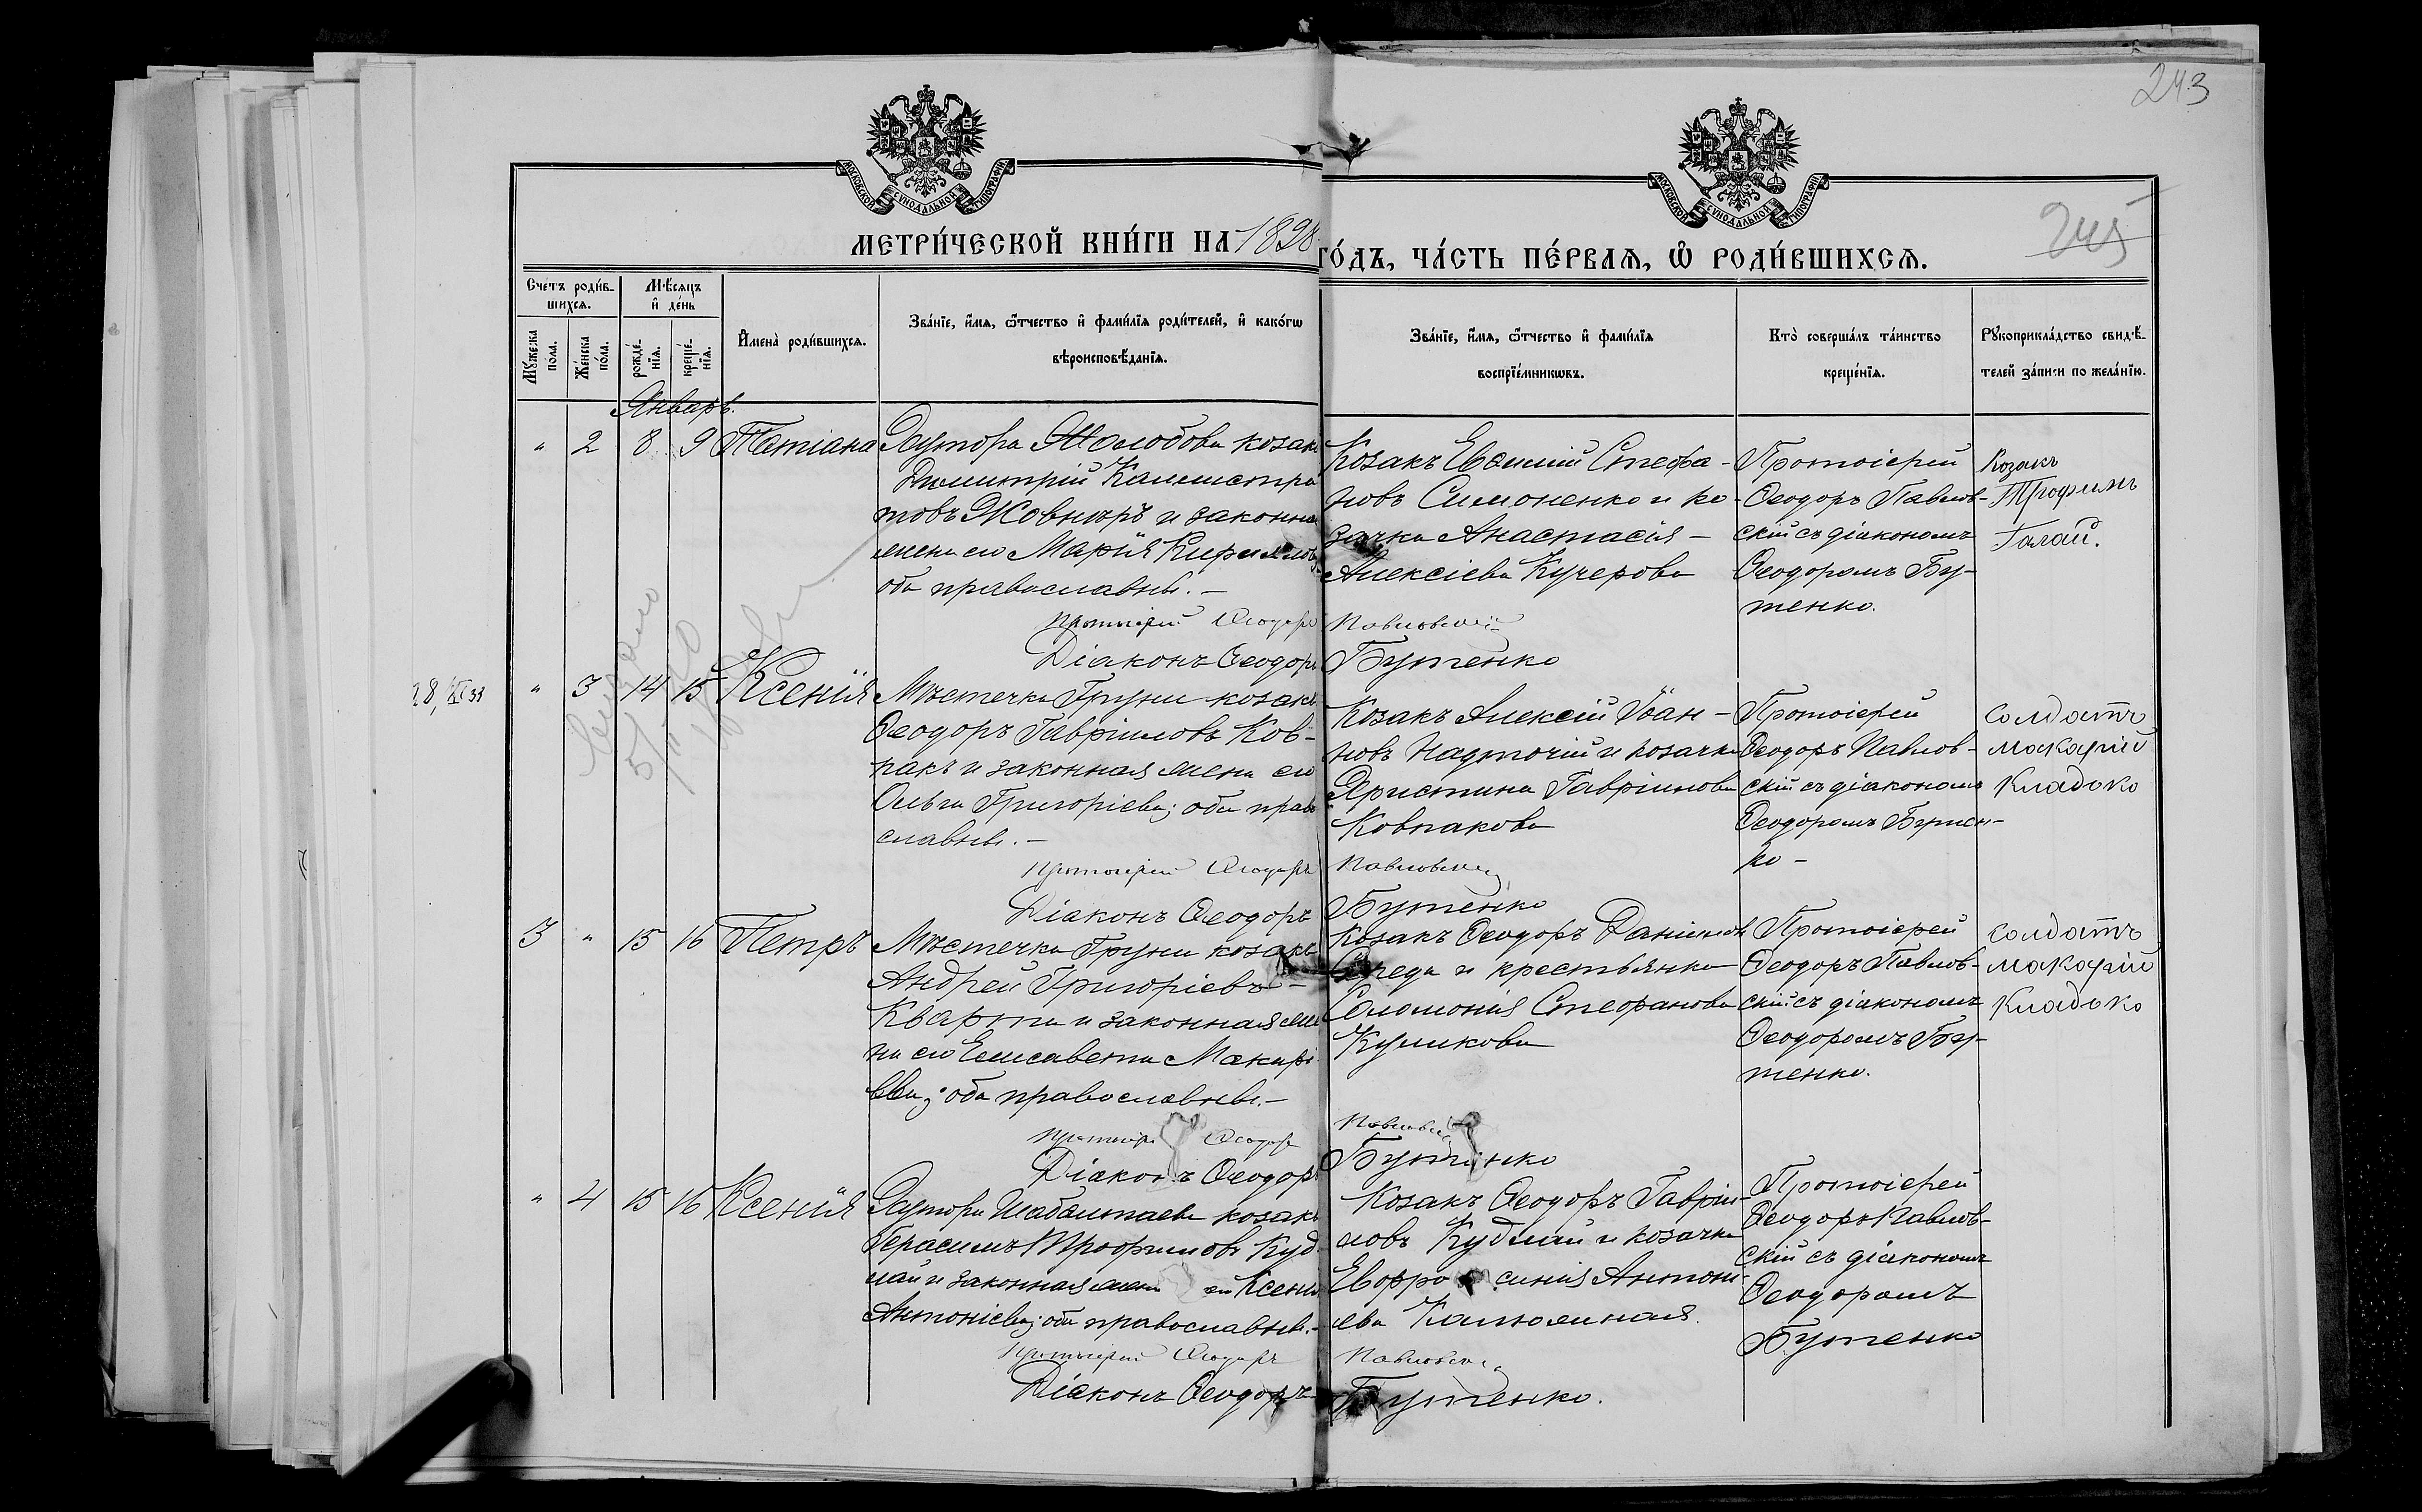 243
245
МОСКОВСКОЙ СѴНОДАЛЬНОЙ ТИПОГРАФІИ
МОСКОВСКОЙ СѴНОДАЛЬНОЙ ТИПОГРАФІИ
МЕТРИ́ЧЕСКОЙ КНИ́ГИ НА 1898
ГО́ДЪ, ЧА́СТЬ ПЕ́РВАѦ, Ѡ҆ РОДИ́ВШИХСѦ.
Сче́тъ роди́в-
шихсѧ.
Мꙋ́жеска
по́ла.
Же́нска
по́ла.
Мѣ́сѧцъ
и҆ де́нь
рожде́-
нїѧ.
креще́-
нїѧ.
И҆мена̀ роди́вшихсѧ.
Зва́нїе, и҆́мѧ, ѻ҆́тчество и҆ фами́лїѧ роди́телей, и҆ како́гѡ
вѣроисповѣ́данїѧ.
Зва́нїе, и҆́мѧ, ѻ҆́тчество и҆ фами́лїѧ
воспрїе́мникѡвъ.
Кто̀ соверша́лъ та́инство
креще́нїѧ.
Рꙋкоприкла́дство свидѣ́-
телей за́писи по жела́нїю.
Январь.
" 2 8 9 Татіана
Хутора Жолобова козакъ
Димитрій Каллистра
товъ Жовниръ и законна
жена его Марія Кирилова
оба православны. –
Козакъ Евѳимій Стефа-
новъ Симоненко и ко-
зачка Анастасія –
Алексіева Кучерова
Протоіерей
Ѳеодоръ Павлов-
скій съ діакономъ
Ѳеодоромъ Бу-
тенко.
Козакъ
Трофимъ
Галай.
Протоіерей Ѳеодоръ Павловскій
Діаконъ Ѳеодоръ Бутенко
28/XI 33
" 3 14 15 Ксенія
Мѣстечка Груни козакъ
Ѳеодоръ Гавріиловъ Ков-
пакъ и законная жена его
Ольга Григоріева; оба право
славны. –
Козакъ Алексій Іоан-
новъ Надточій и козачка
Христина Гавріилова
Ковпакова
Протоіерей
Ѳеодоръ Павлов-
скій съ діакономъ
Ѳеодоромъ Бутен-
ко –
солдатъ
Макарій
Кладько
Протоіерей Ѳеодоръ Павловскій
Діаконъ Ѳеодоръ Бутенко
3 " 15 16 Петръ
Мѣстечка Груни козакъ
Андрей Григоріевъ –
Кварта и законная же
на его Елисавета Макарі
ева; оба православны. –
Козакъ Ѳеодоръ Даніиловъ
и крестьянка
Соломонія Стефанова
Куликова
Протоіерей
Ѳеодоръ Павлов-
скій съ діакономъ
Ѳеодоромъ Бу-
тенко.
солдатъ
Макарій
Кладько
Протоіер Ѳеодоръ Павловскій
Діаконъ Ѳеодоръ Бутенко
" 4 15 16 Ксенія
Хутора козакъ
Герасимъ Трофимовъ Куд-
лай и законная жена его Ксенія
Антоніева; оба православны. –
Козакъ Ѳеодоръ Гавріи-
ловъ Кудлай и козачка
Евфросинія Антоні-
ева
Протоіерей
Ѳеодоръ Павлов-
скій съ діакономъ
Ѳеодоромъ
Бутенко
Протоіерей Ѳеодоръ Павловскій
Діаконъ Ѳеодоръ Бутенко.